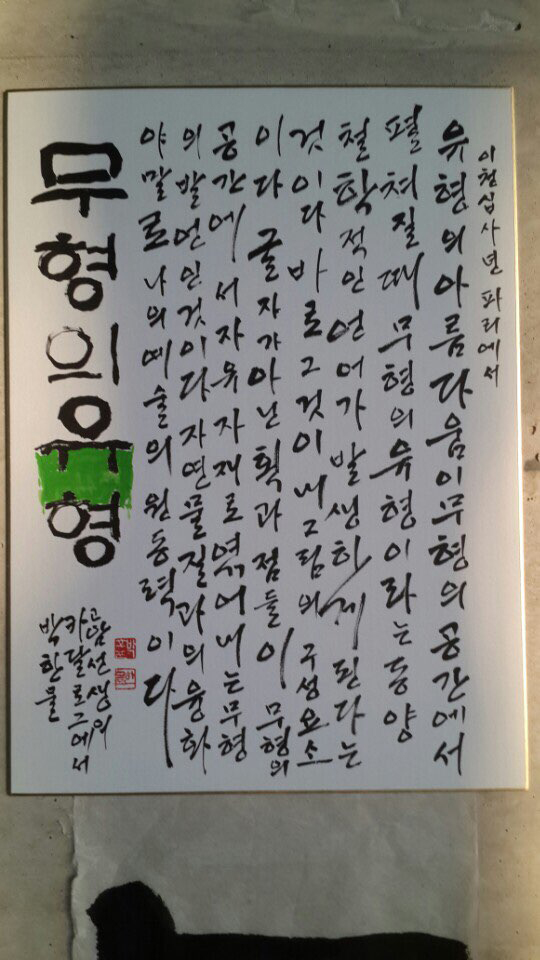 이천십사년 파리에서
유형의 아름다움이 무형의 공간에서
펼쳐질때 무형의 유형이라는 동양
철학적인 언어가 발생하게 된다는
것이다 바로 그것이 내그림의 구성요소
이다 글자가 아닌 획과 점들이 무형의
공간에서 자유자재로 엮어내는 무형
의 발언인것이다 자연물질과의 융화
야말로 나의 예술의 원동력이다
무형의유형
고암선생의
카달로그에서
박한물